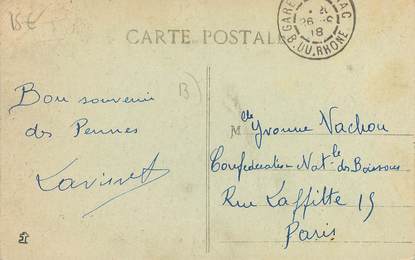 15€
CARTE POSTALE
GARE
AC
26
18
B. DU RHONE
B)
Bon souvenir
des Pennes
Mlle Yvonne Vachon
Confédération Natle des Boissons
Rue Laffitte 15
Paris